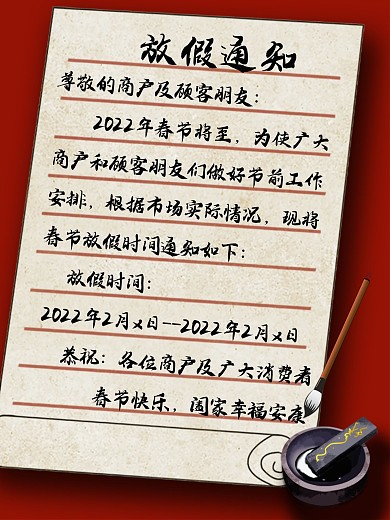 放假通知
尊敬的商户及顾客朋友：
2022年春节将至，为使广大
商户和顾客朋友们做好节前工作
安排，根据市场实际情况，现将
春节放假时间通知如下：
放假时间：
2022年2月x日--2022年2月x日
恭祝：各位商户及广大消费者
春节快乐，阖家幸福安康